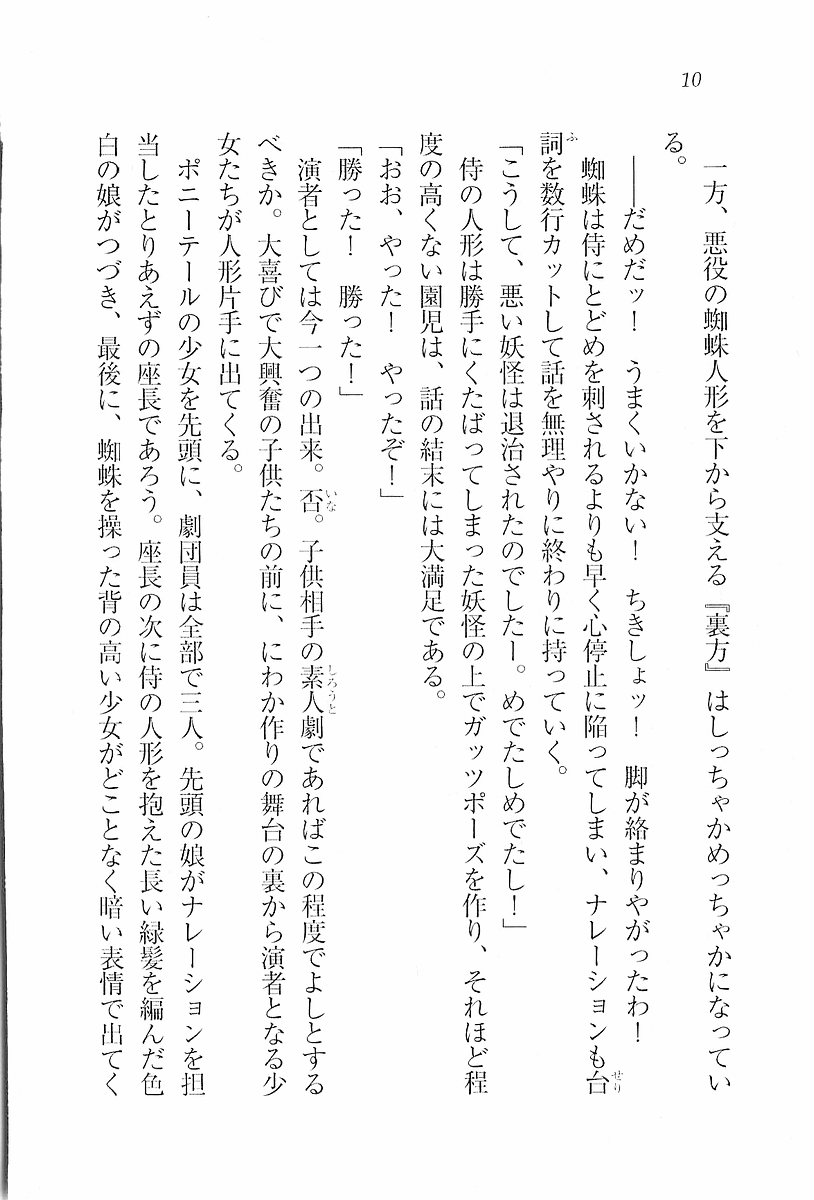 10
一方、悪役の蜘蛛人形を下から支える『裏方』はしっちゃかめっちゃかになってい
る。
――だめだッ！　うまくいかない！　ちきしょッ！　脚が絡まりやがったわ！
蜘蛛は侍にとどめを刺されるよりも早く心停止に陥ってしまい、ナレーションも台
詞を数行カットして話を無理やりに終わりに持っていく。
「こうして、悪い妖怪は退治されたのでしたー。めでたしめでたし！」
侍の人形は勝手にくたばってしまった妖怪の上でガッツポーズを作り、それほど程
度の高くない園児は、話の結末には大満足である。
「おお、やった！　やったぞ！」
「勝った！　勝った！」
演者としては今一つの出来。否。子供相手の素人劇であればこの程度でよしとする
べきか。大喜びで大興奮の子供たちの前に、にわか作りの舞台の裏から演者となる少
女たちが人形片手に出てくる。
ポニーテールの少女を先頭に、劇団員は全部で三人。先頭の娘がナレーションを担
当したとりあえずの座長であろう。座長の次に侍の人形を抱えた長い緑髪を編んだ色
白の娘がつづき、最後に、蜘蛛を操った背の高い少女がどことなく暗い表情で出てく